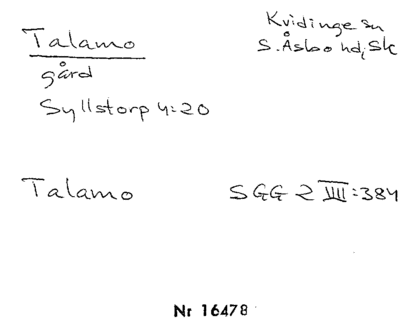 Talamo
Kvidinge sn
S. Åsbo hd, Sk
gård
Syllstorp 4:20
Talamo SGG 2 IIII:384
Nr 16478